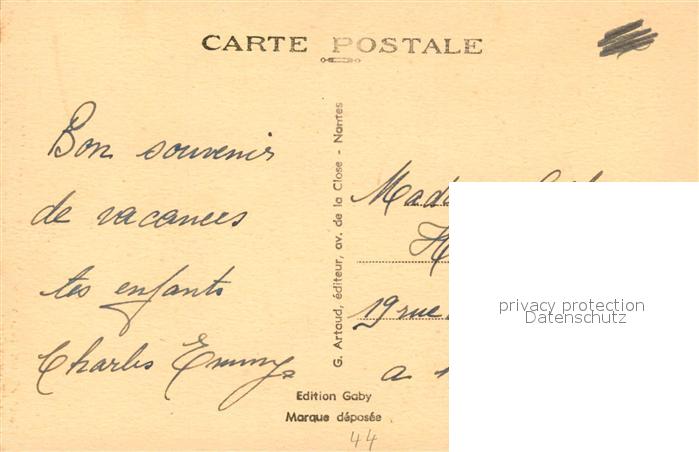 CARTE POSTALE
Bon souvenir
de vacances
tes enfants
Charles Emmy
G. Artaud, éditeur, av. de la Close - Nantes
19 rue
a
Edition Gaby
Marque déposée
44
privacy protection
Datenschutz